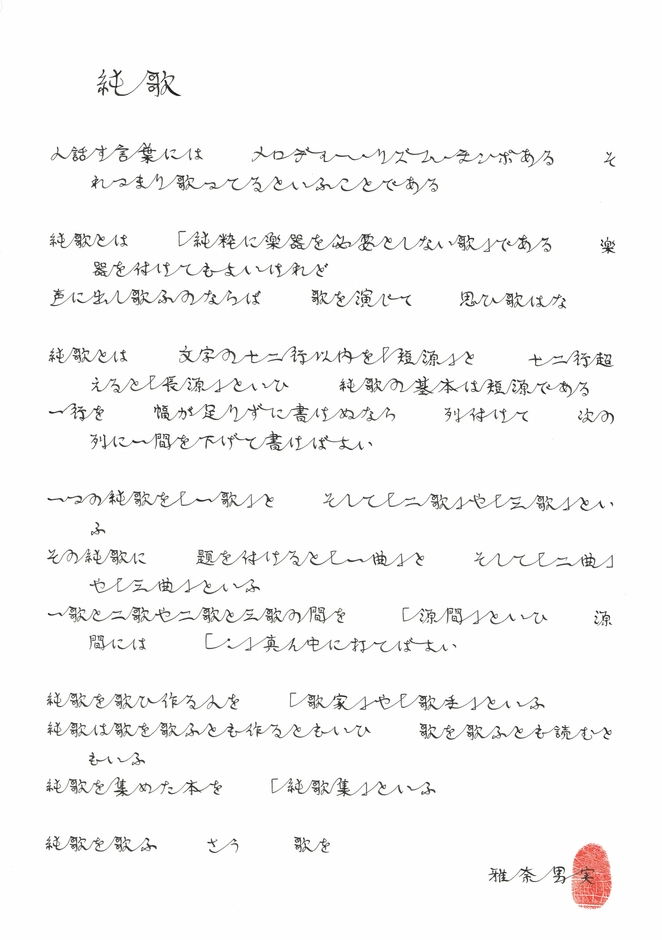 純歌
人話す言葉には　メロディー・リズム・テンポある　そ
れつまり歌ってるといふことである
純歌とは　「純粋に楽器を必要としない歌」である　楽
器を付けてもよいけれど
声に出し歌ふのならば　歌を演じて　思ひ歌はな
純歌とは　文字の十二行以内を「短源」と　十二行超
えると「長源」といひ　純歌の基本は短源である
一行を　幅が足りずに書けぬなら　列付けて　次の
列に一間を下げて書けばよい
一つの純歌を「一歌」と　そして「二歌」や「三歌」とい
ふ
その純歌に　題を付けると「一曲」と　そして「二曲」
や「三曲」といふ
一歌と二歌や二歌と三歌の間を　「源間」といひ　源
間には　「・」真ん中に打てばよい
純歌を歌ひ作る人を　「歌家」や「歌手」といふ
純歌は歌を歌ふとも作るともいひ　歌を歌ふとも読むと
もいふ
純歌を集めた本を　「純歌集」といふ
純歌を歌ふ　さう　歌を
雅奈男実